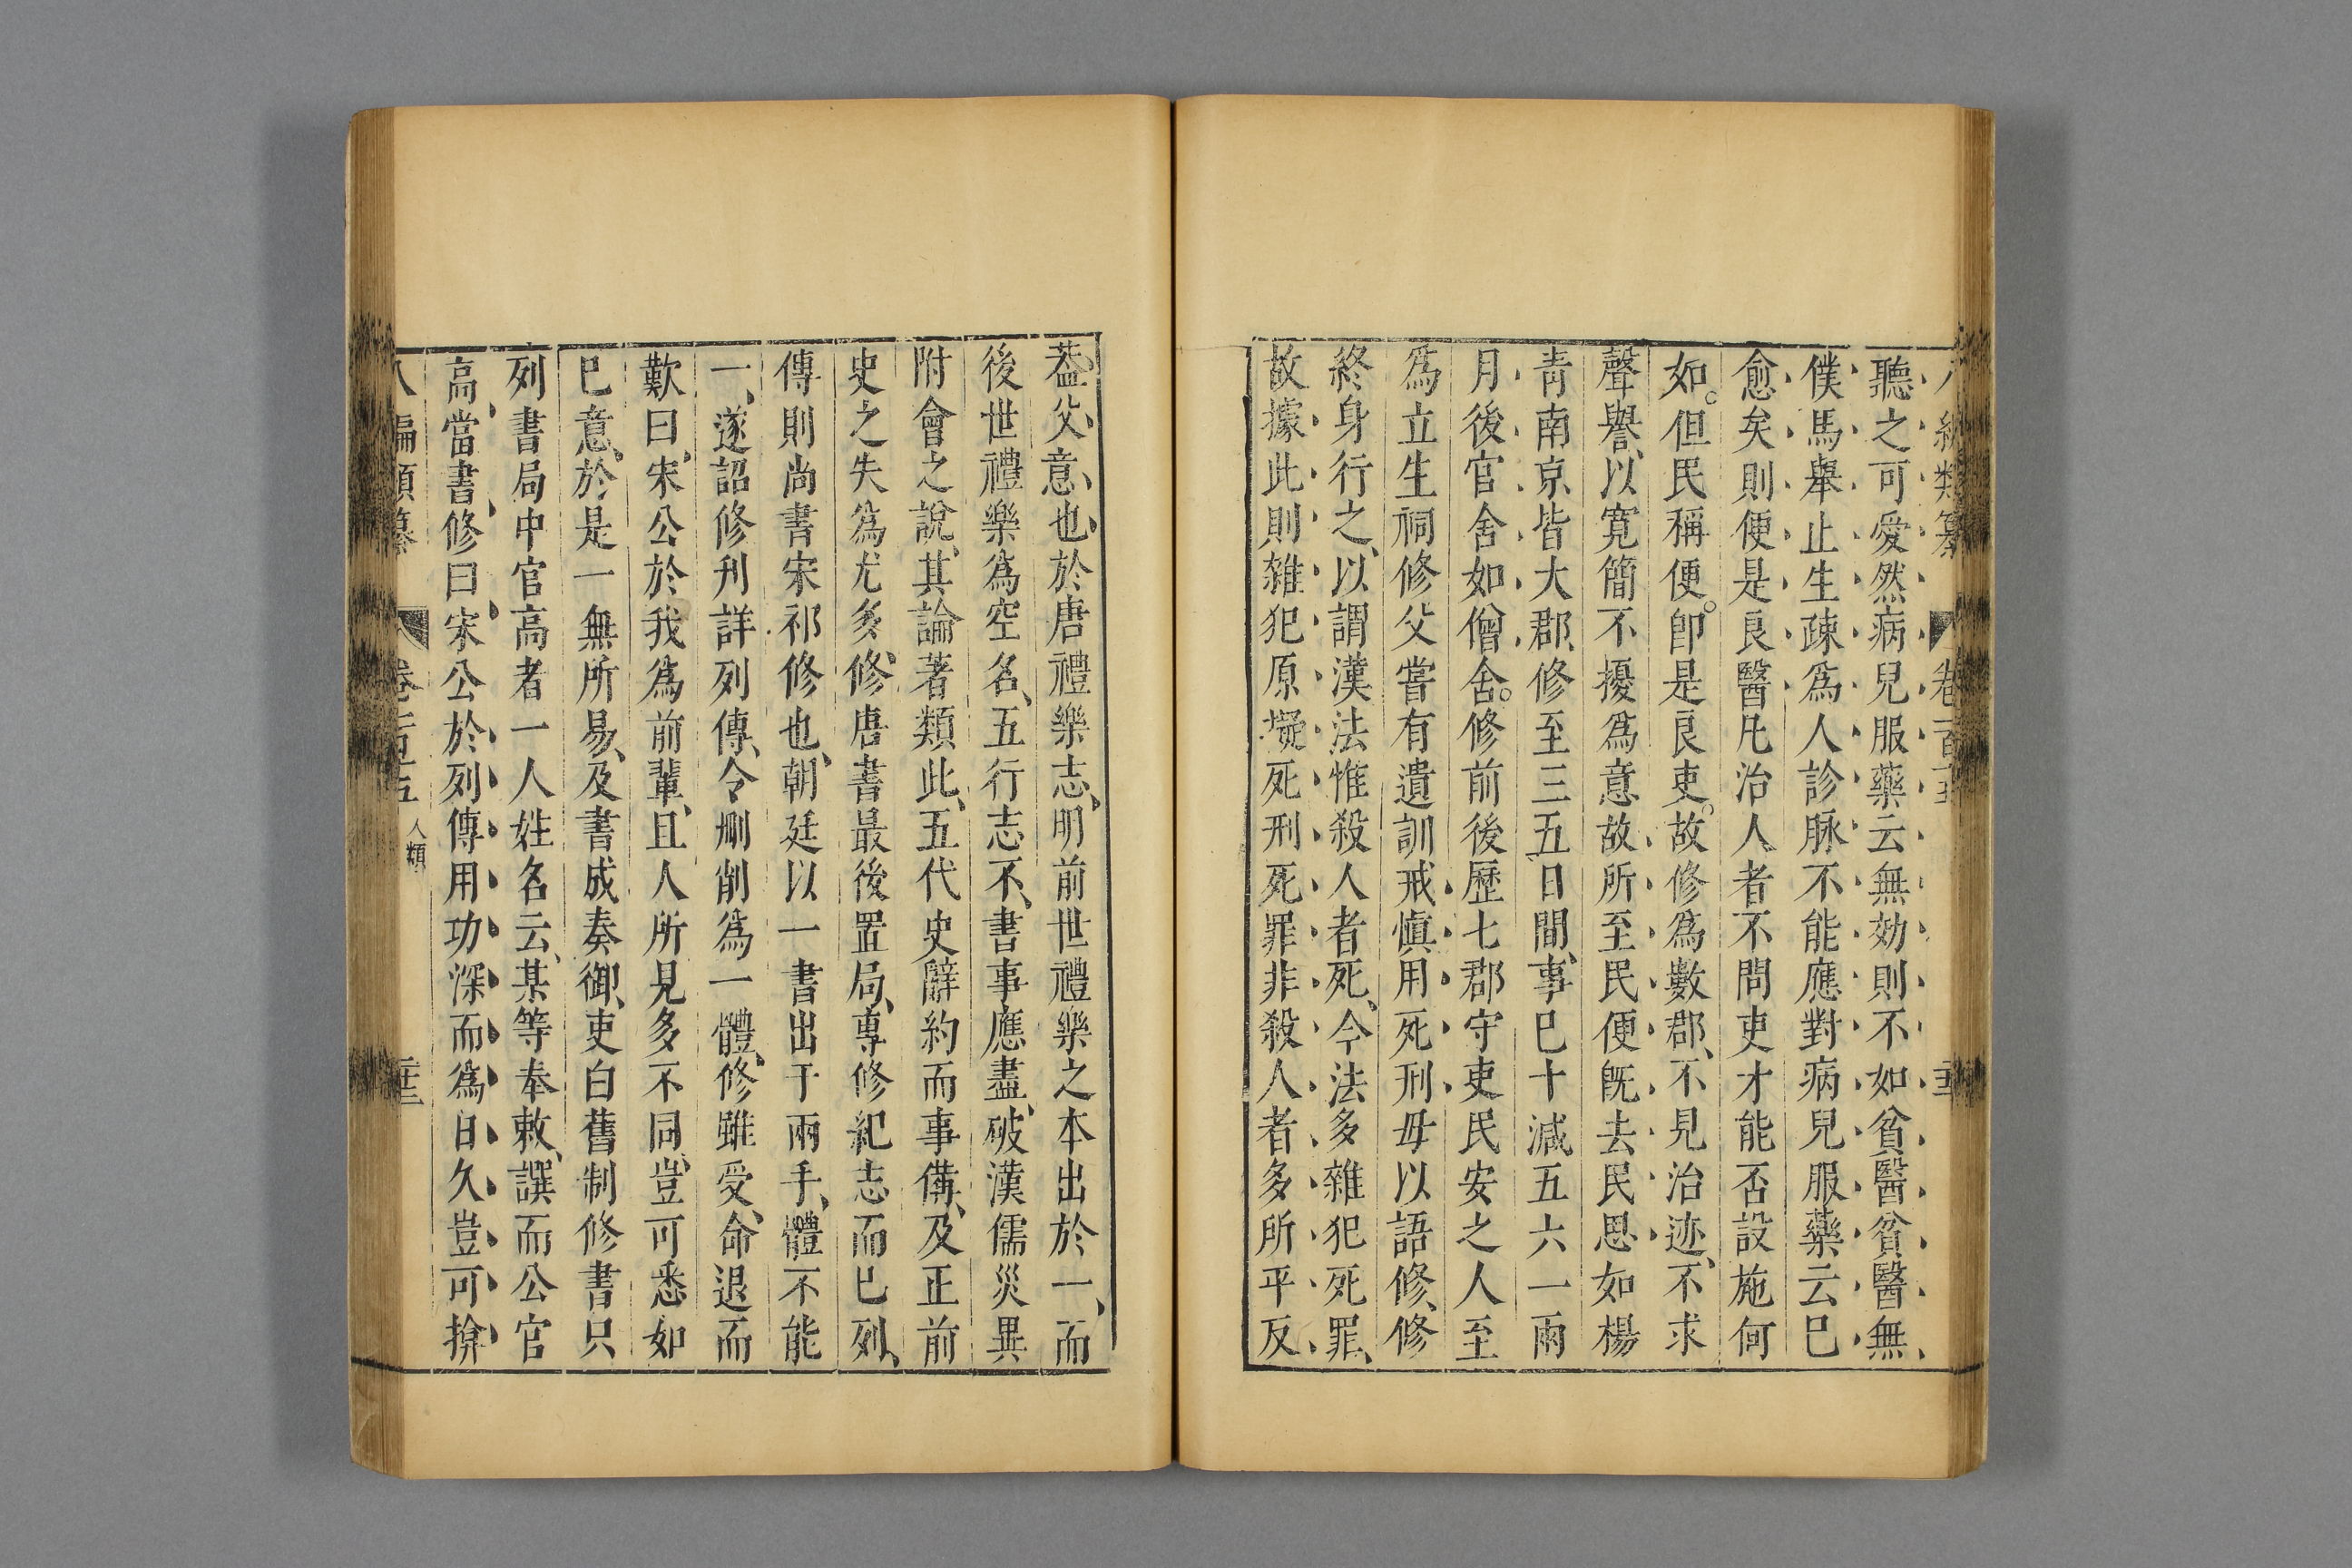 聽之可愛然病兒服藥云無効則不如貧醫貧醫無
僕馬舉止生疎爲人診脉不能應對病兒服藥云巳
愈矣則便是良醫凡治人者不問吏才能否設施何
如。但民稱便。卽是良吏。故修爲數郡、不見治迹、不求
聲譽、以寬簡不擾爲意故所至民便旣去民思如楊
靑南京皆大郡、修至三五日間、事巳十減五六一兩
月後官舍如僧舍。修前後歷七郡守吏民安之人至
爲立生祠修父嘗有遺訓戒愼用死刑毋以語修、修
終身行之、以謂漢法惟殺人者死、今法多雜犯死罪、
故據此則雜犯原擬死刑死罪非殺人者多所平反
葢父意也、於唐禮樂志、明前世禮樂之本出於一、而
後世禮樂爲空名、五行志不、書事應盡、破漢儒災異
附會之說、其論著類此、五代史辭約而事備、及正前
史之失爲尤多、修唐書最後置局、專修紀志而巳列、
傳則尚書宋祁修也、朝廷以一書出于兩手、體不能
一、遂詔修刋詳列傳、令刪削爲一體、修雖受、命退而
歎曰、宋公於我爲前輩、且人所見多不同、豈可悉如
巳意、於是一無所易、及書成奏御、吏白舊制修書只
列書局中官高者一人姓名云、某等奉敕、譔而公官
高、當書、修曰宋公於列傳用功深而爲日久豈可揜
八編類纂 卷一百五 人類